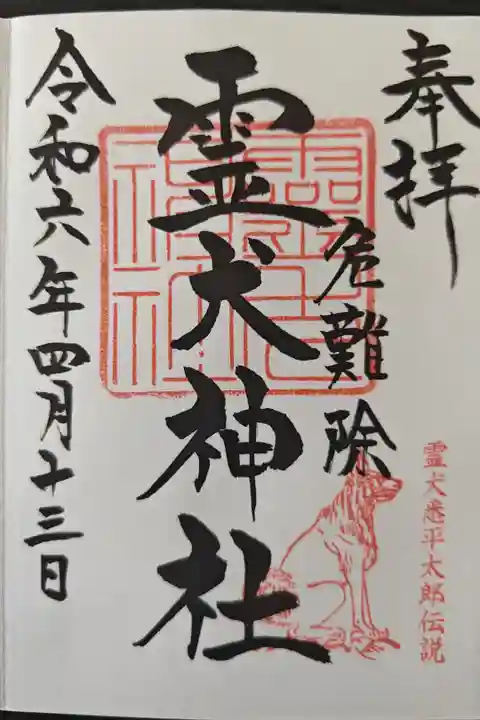 奉拝
危難除
霊犬神社
令和六年四月十三日
霊犬悉平太郎伝説